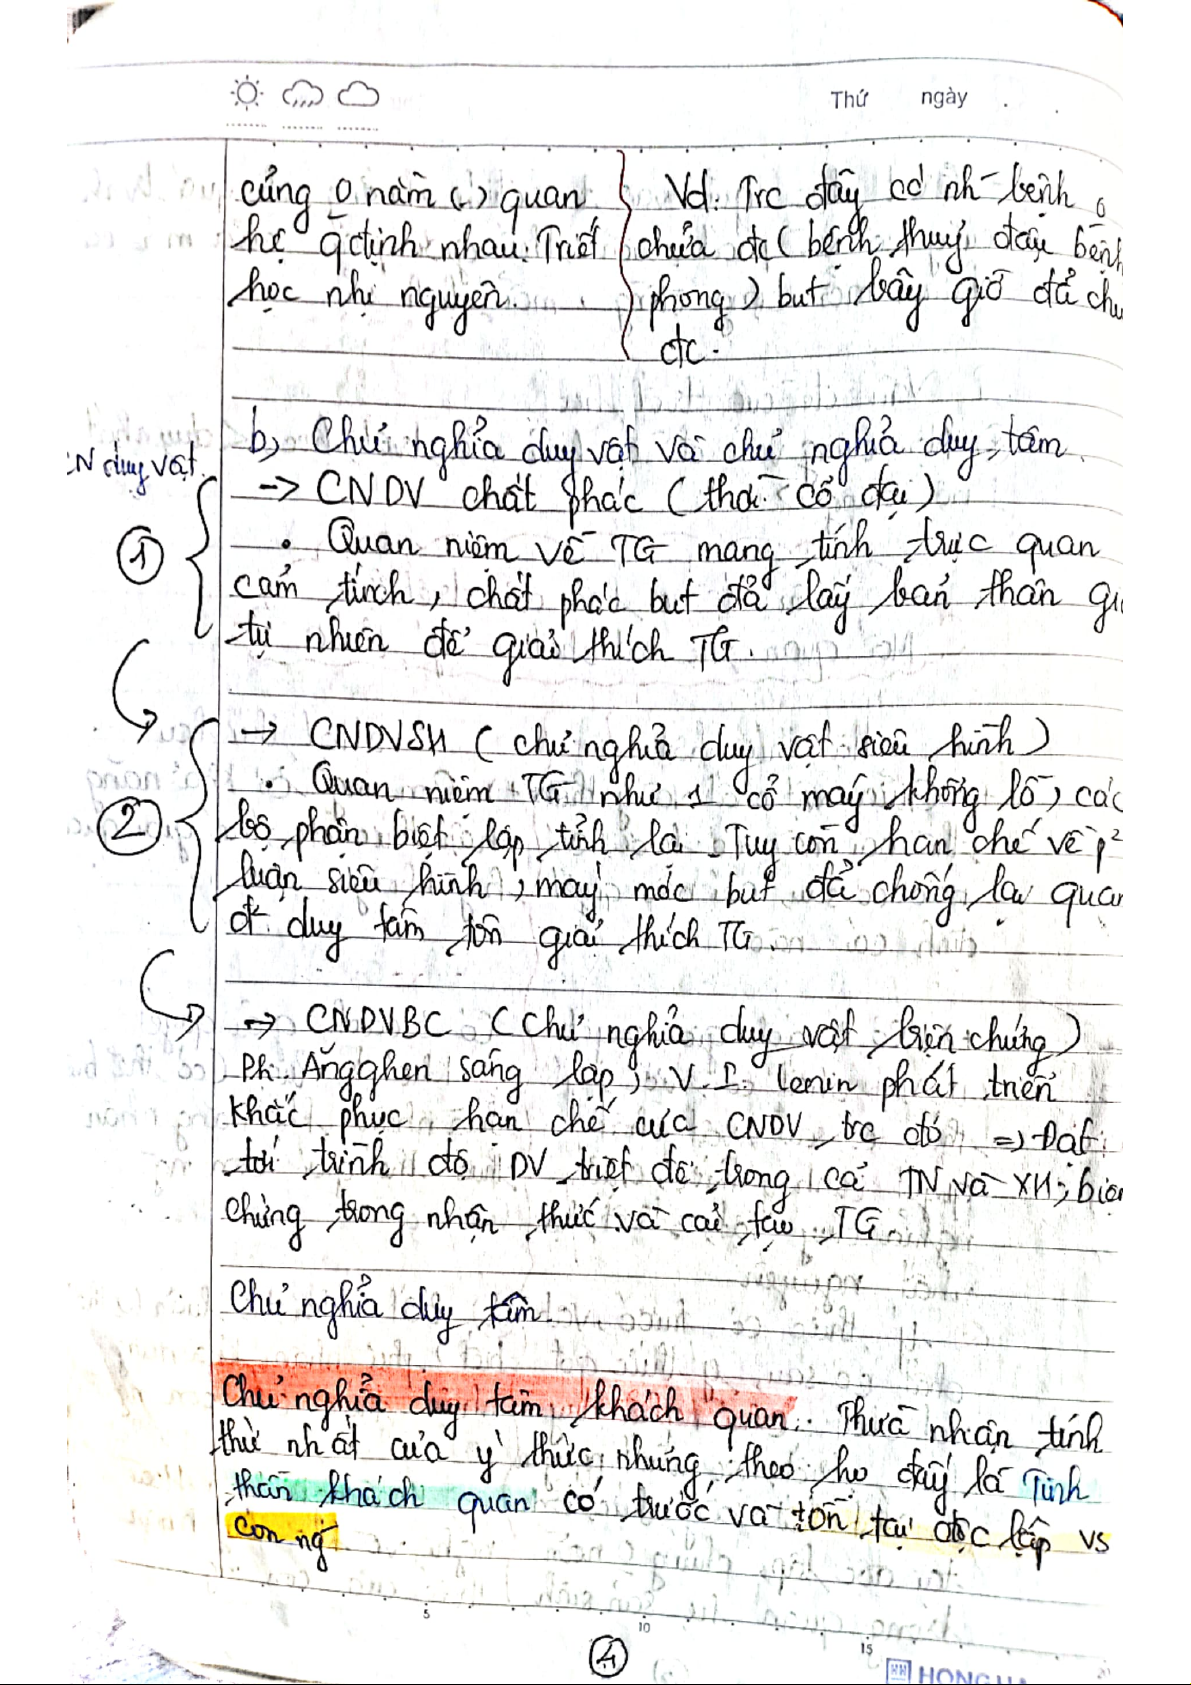 Thứ ngày
cùng 0 nằm (.) quan
hệ qđịnh nhau. Triết
học nhị nguyên.
Vd: Trc đây có nh bệnh 0
chữa đc (bệnh thuỷ đậu, bệnh
phong) but bây giờ đã
đc.
b, Chủ nghĩa duy vật và chủ nghĩa duy tâm.
CN duy vật
-> CNDV chất phác (thời cổ đại)
1
• Quan niệm về TG mang tính trực quan
cảm tính, chất phác but đã lấy bản thân
tự nhiên để giải thích TG.
-> CNDVSH (chủ nghĩa duy vật siêu hình)
• Quan niệm TG như 1 cỗ máy khổng lồ, các
2
bộ phận biệt lập tĩnh lại. Tuy còn hạn chế về p²
luận siêu hình, máy móc but đã chống lại quan
đ duy tâm tôn giáo giải thích TG.
-> CNDVBC (Chủ nghĩa duy vật biện chứng)
Ph. Ăngghen sáng lập, V.I. Lenin phát triển
Khắc phục hạn chế của CNDV trc đó => Đạt
tới trình độ DV triệt để trong cả TN và XH; biện
chứng trong nhận thức và cải tạo TG.
Chủ nghĩa duy tâm
Chủ nghĩa duy tâm khách quan. Thừa nhận tính
thứ nhất của ý thức nhưng theo họ đấy là Tinh
thần khách quan có trước và tồn tại độc lập vs
con ng
5 10 15
4